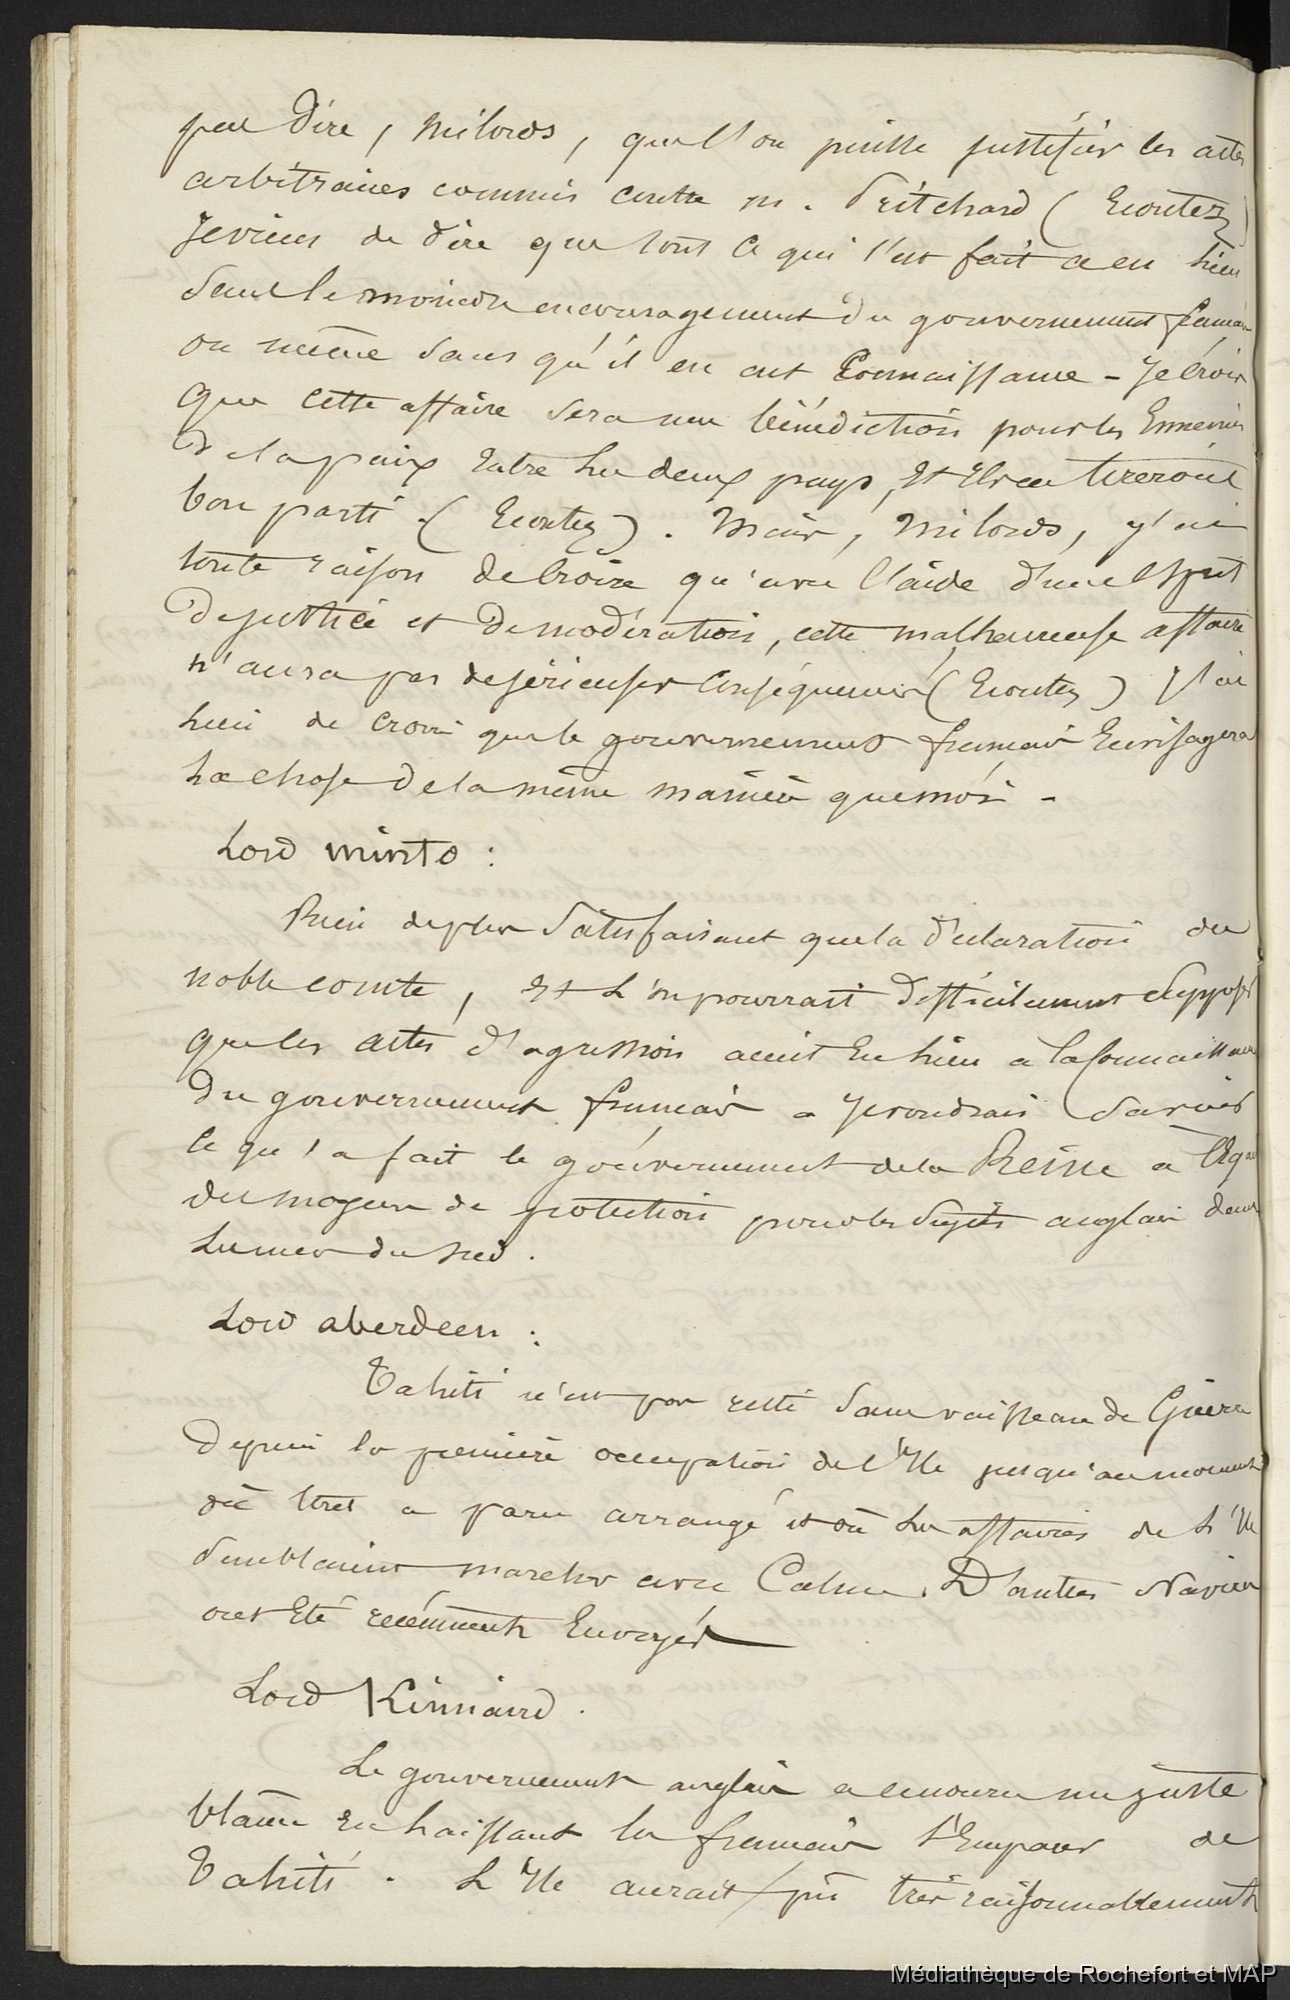 pas dire, milords, que l'on puisse justifier les actes
arbitraires commis contre m. Pritchard (Ecoutez)
Je viens de dire que tout ce qui s'est fait a eu lieu
sans le moindre encouragement du gouvernement français
ou même sans qu'il en eut Connaissance - Je Crois
que cette affaire sera une bénédiction pour les Ennemis
de la paix Entre les deux pays, Et Ils en tireront
bon parti. (Ecoutez). Mais, milords, j'ai
toute raison de Croire qu'avec l'aide d'un Esprit
De justice et De modération, cette malheureuse affaire
n'aura pas de sérieuses Conséquences (Ecoutez) J'ai
lieu de croire que le gouvernement français Envisagera
La chose De la même manière que moi -
Lord Minto :
Rien de plus Satisfaisant que la Déclaration du
noble comte, Et L'on pourrait Difficilement Supposer
que les actes d'agression aient Eu lieu à la Connaissance
Du gouvernement français - Je voudrais Savoir
ce qu'a fait le gouvernement de la Reine à l'Egard
des moyens de protection pour les Sujets anglais dans
Les mers du Sud.
Lord aberdeen :
Tahiti n'est pas resté Sans vaisseau de Guerre
Depuis la première occupation de l'Ile jusqu'au moment
où tout a paru arrangé et où Les affaires de L'Ile
Semblaient marcher avec Calme. D'autres Navires
ont Eté récemment Envoyés
Lord Kinnaird.
Le gouvernement anglais a encouru un juste
blâme En laissant les français S'Emparer de
Tahiti. L'Ile aurait pu très raisonnablement
Médiathèque de Rochefort et MAP